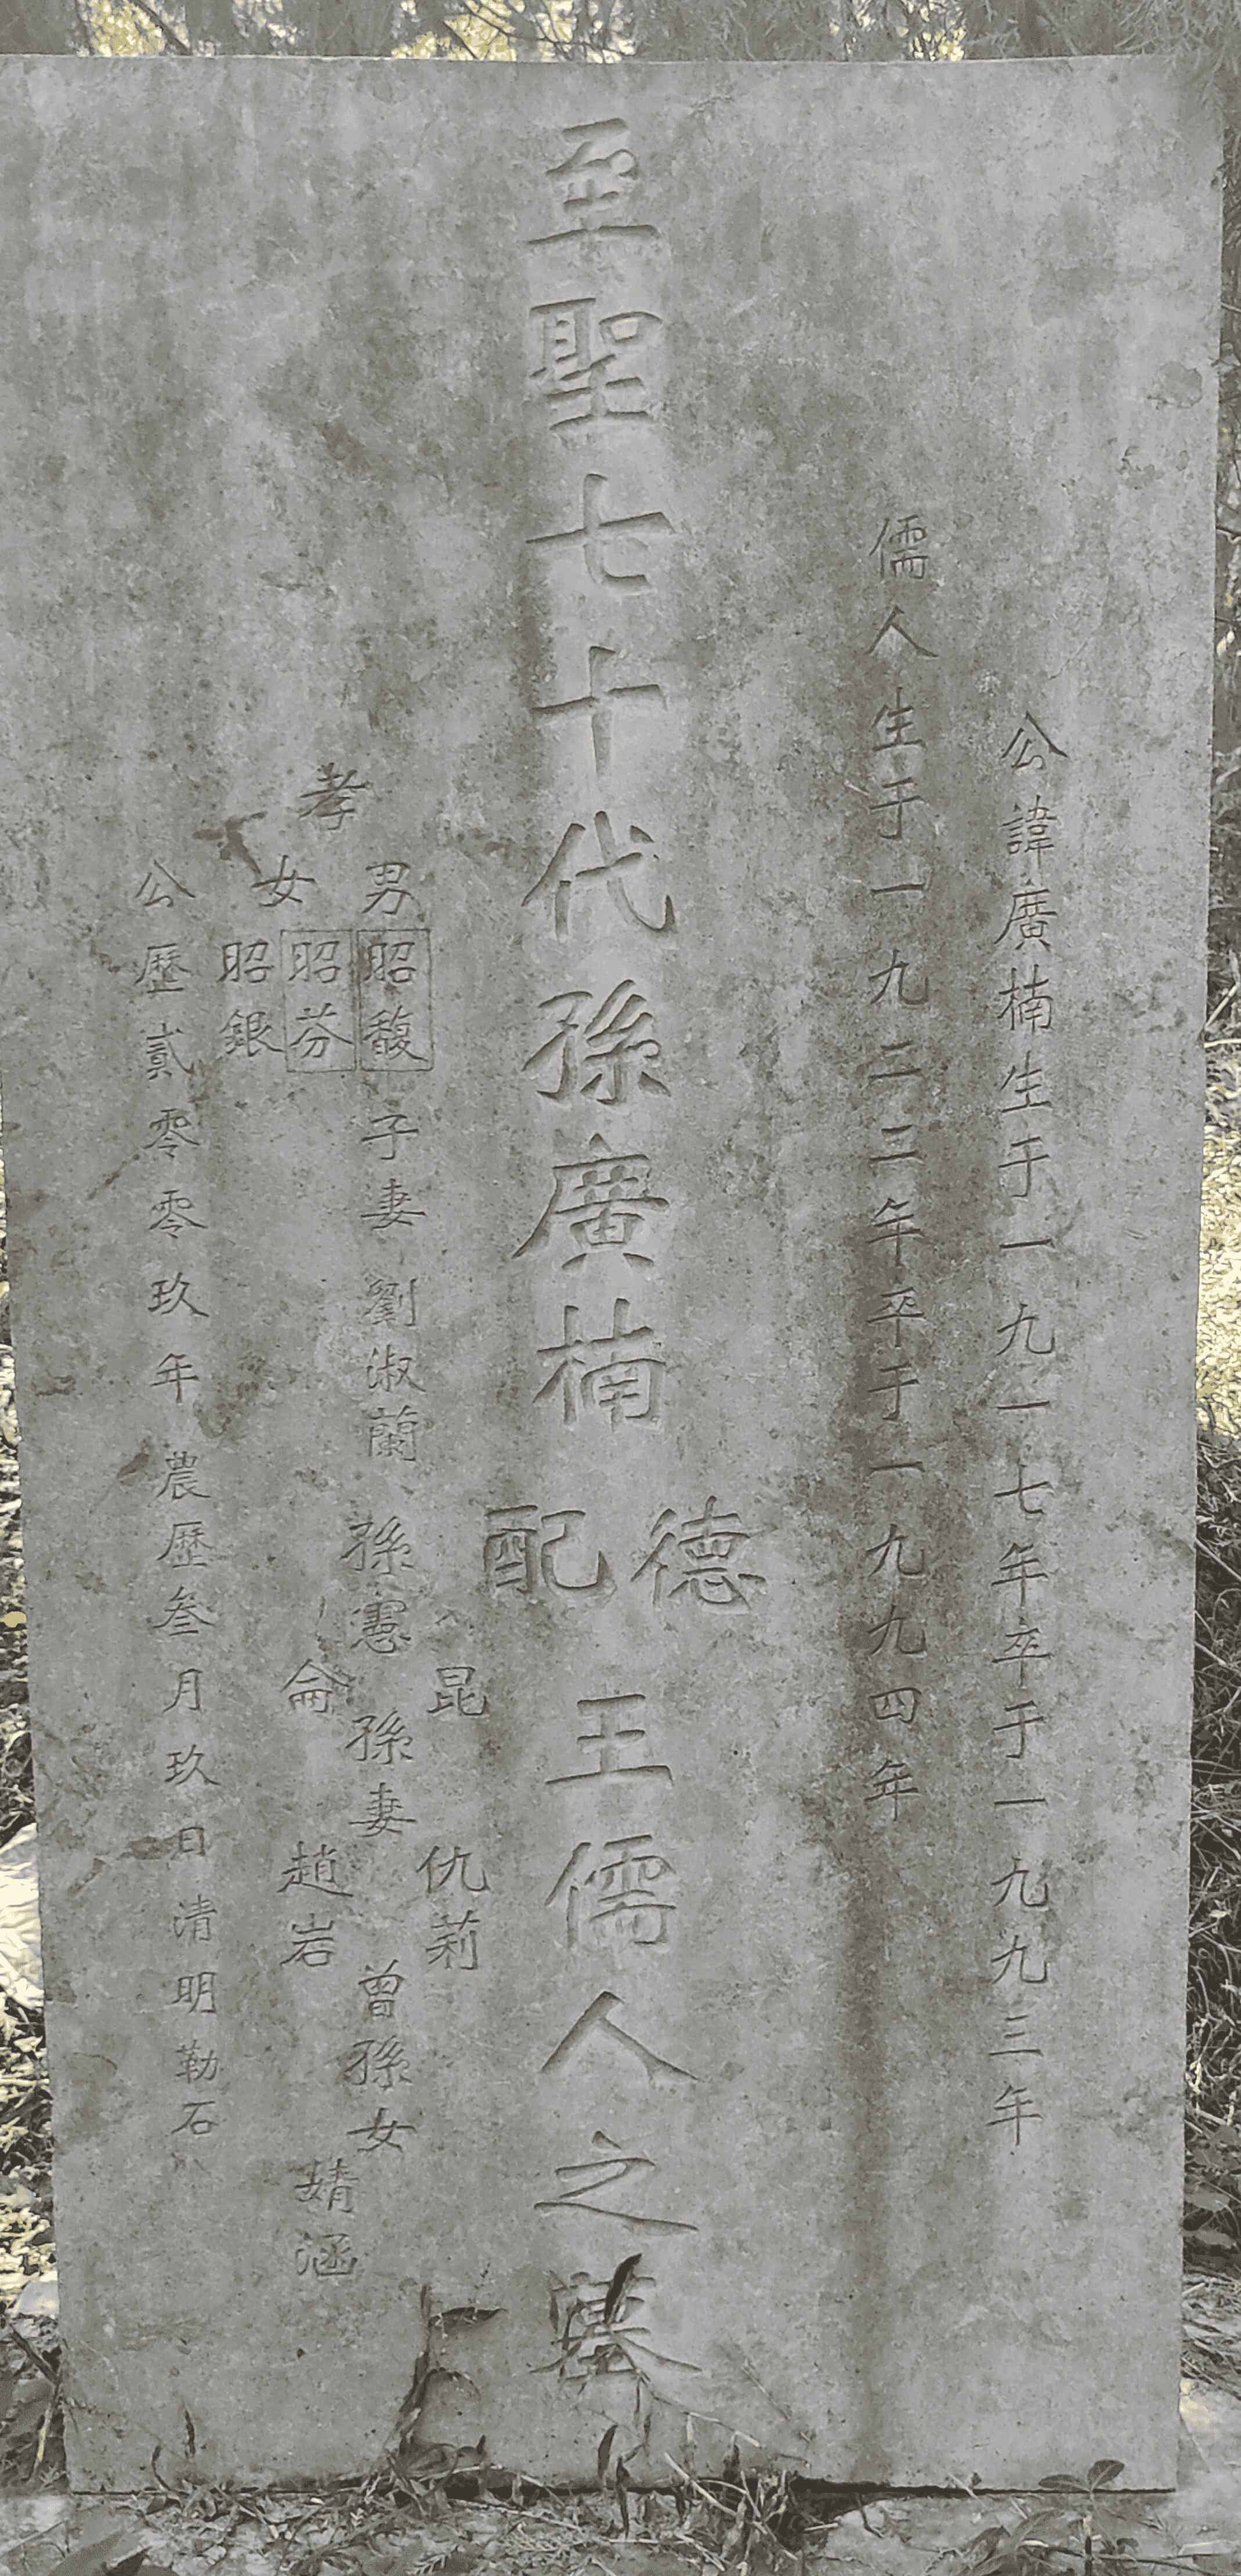 公諱廣楠生于一九一七年卒于一九九三年
儒人生于一九二二年卒于一九九四年
至聖七十代孫廣楠德配王儒人之墓
孝
男昭馥子妻劉淑蘭孫憲昆侖孫妻仇莉趙岩曾孫女婧涵
女昭芬
昭銀
公歷貳零零玖年農歷叁月玖日清明勒石